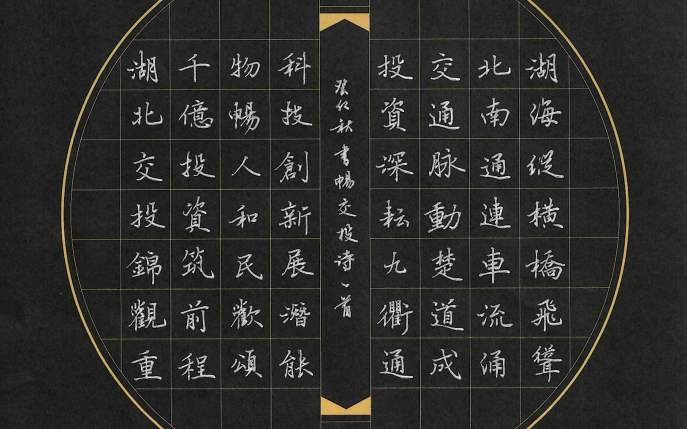 湖海縱橫橋飛聳
北南通連車流涌
交通脉動楚道成
投資深耘九衢通
癸卯秋書暢交投诗一首
科技創新展潛能
物暢人和民歡頌
千億投資筑前程
湖北交投錦觀重